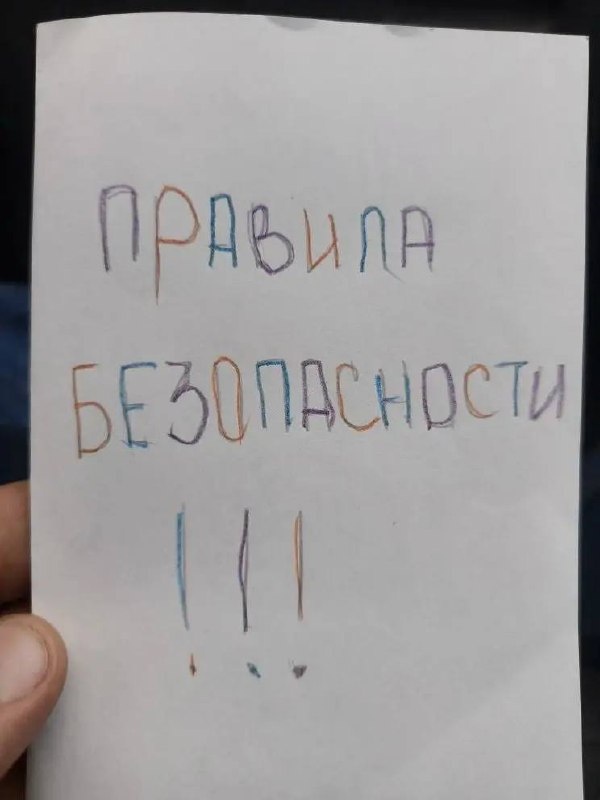 ПРАВИЛА
БЕЗОПАСНОСТИ
!!!